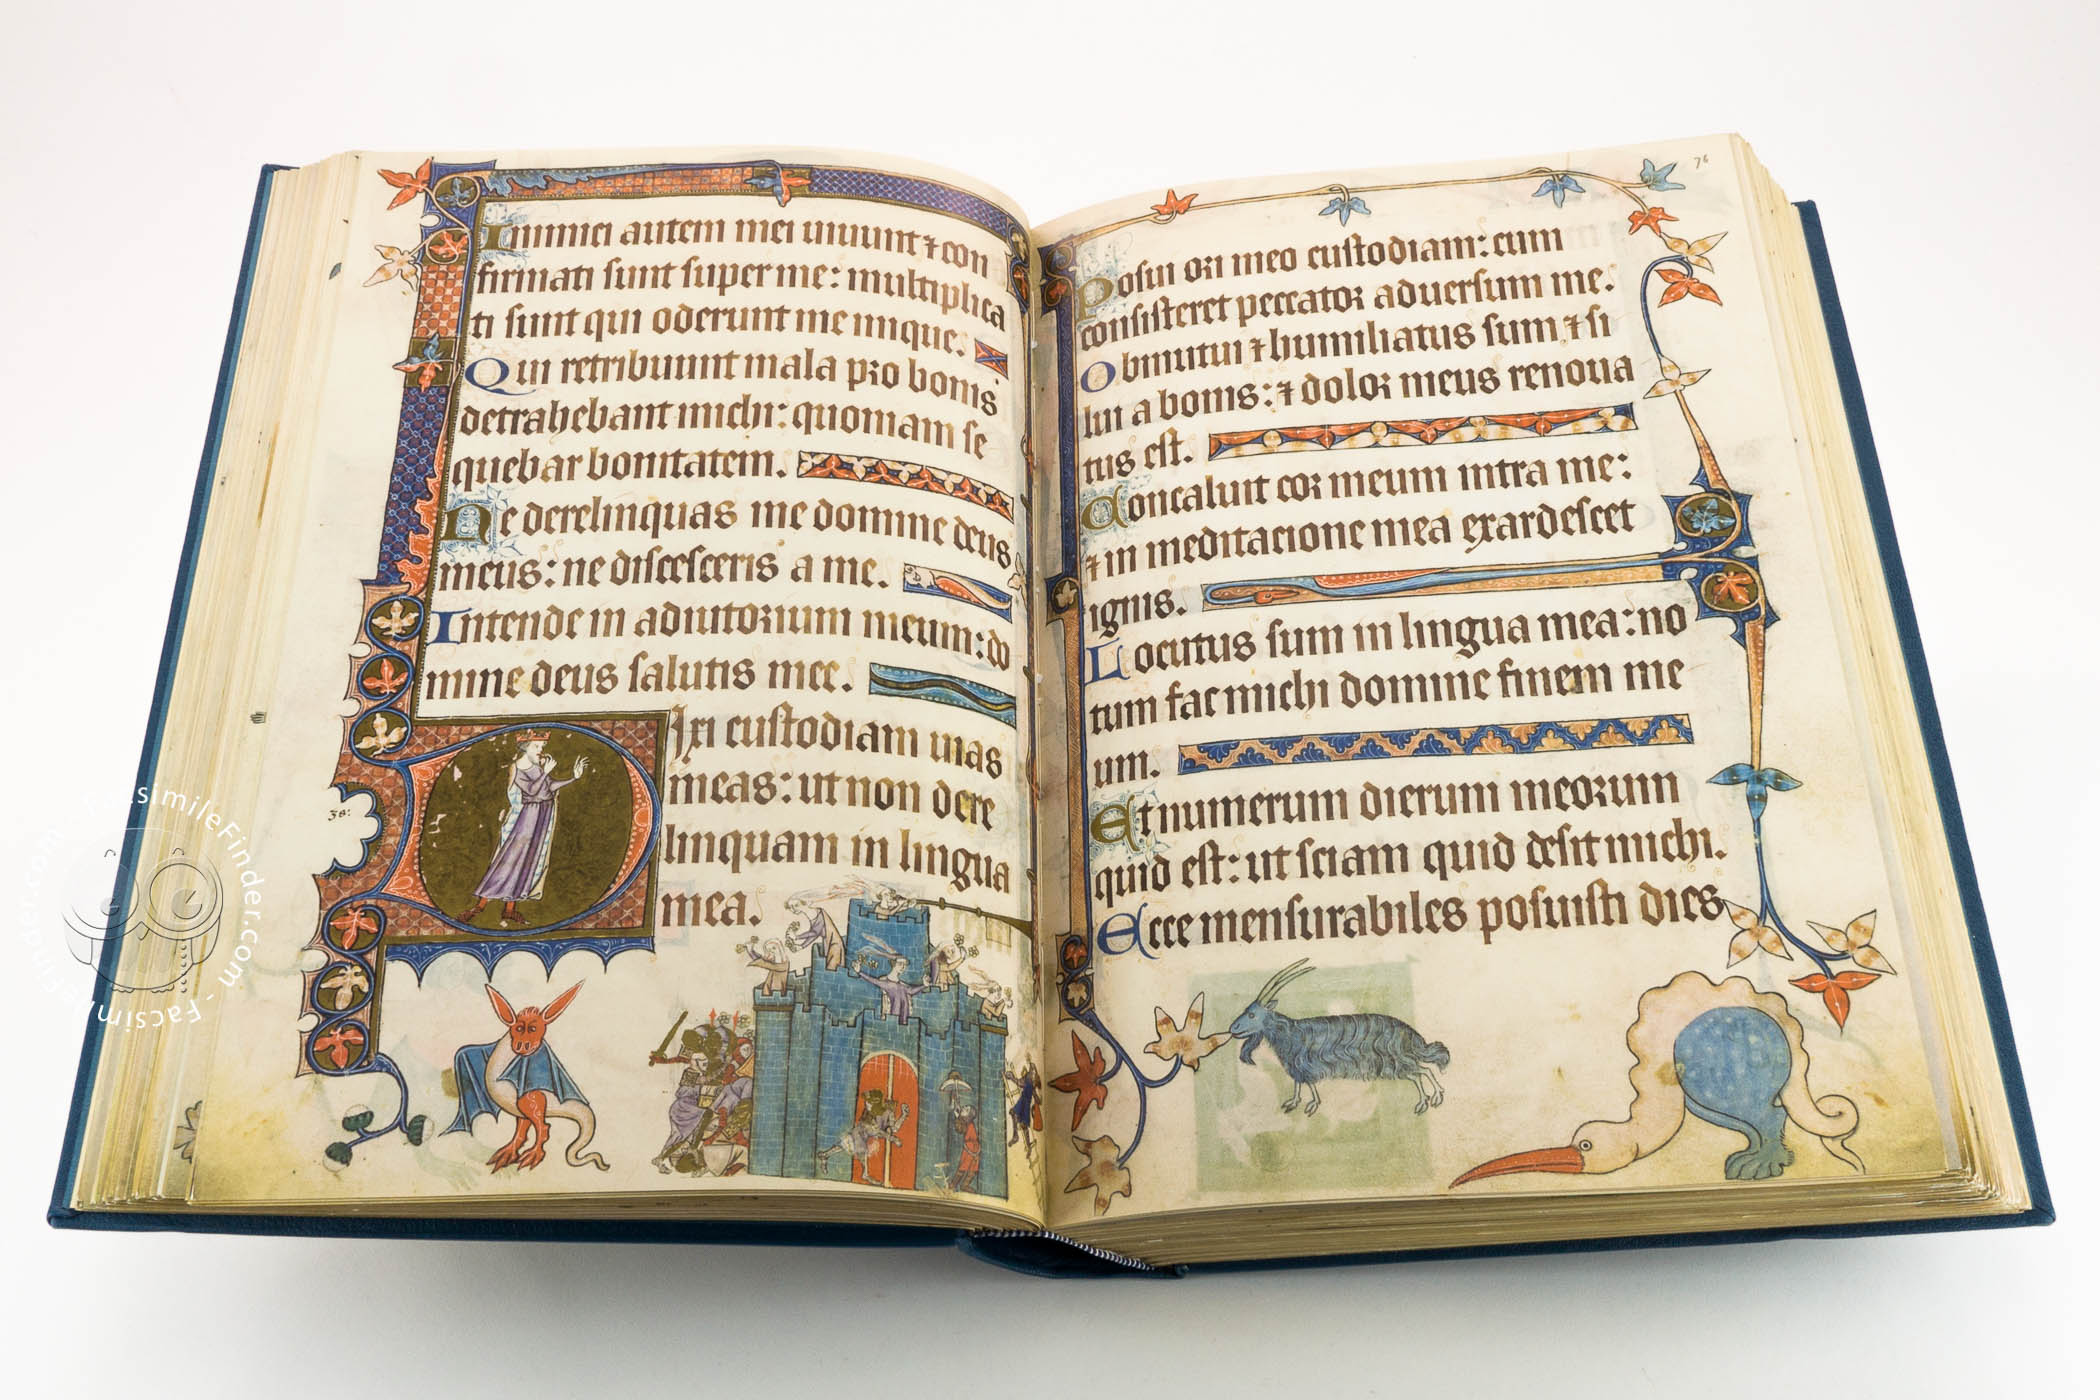 Inimici autem mei uiuunt ⁊ con
firmati sunt super me: multiplica
ti sunt qui oderunt me inique.
Qui retribuunt mala pro bonis
detrahebant michi: quoniam se
quebar bonitatem.
Ne derelinquas me domine deus
meus: ne discesseris a me.
Intende in adiutorium meum: do
mine deus salutis mee.
Dixi custodiam uias
meas: ut non dere
linquam in lingua
mea.
38:
76
Posui ori meo custodiam: cum
consisteret peccator aduersum me.
Obmutui ⁊ humiliatus sum ⁊ si
lui a bonis: ⁊ dolor meus renoua
tus est.
Concaluit cor meum intra me:
⁊ in meditacione mea exardescet
ignis.
Locutus sum in lingua mea: no
tum fac michi domine finem me
um.
Et numerum dierum meorum
quid est: ut sciam quid desit michi.
Ecce mensurabiles posuisti dies
FacsimileFinder.com - FacsimileFinder.com